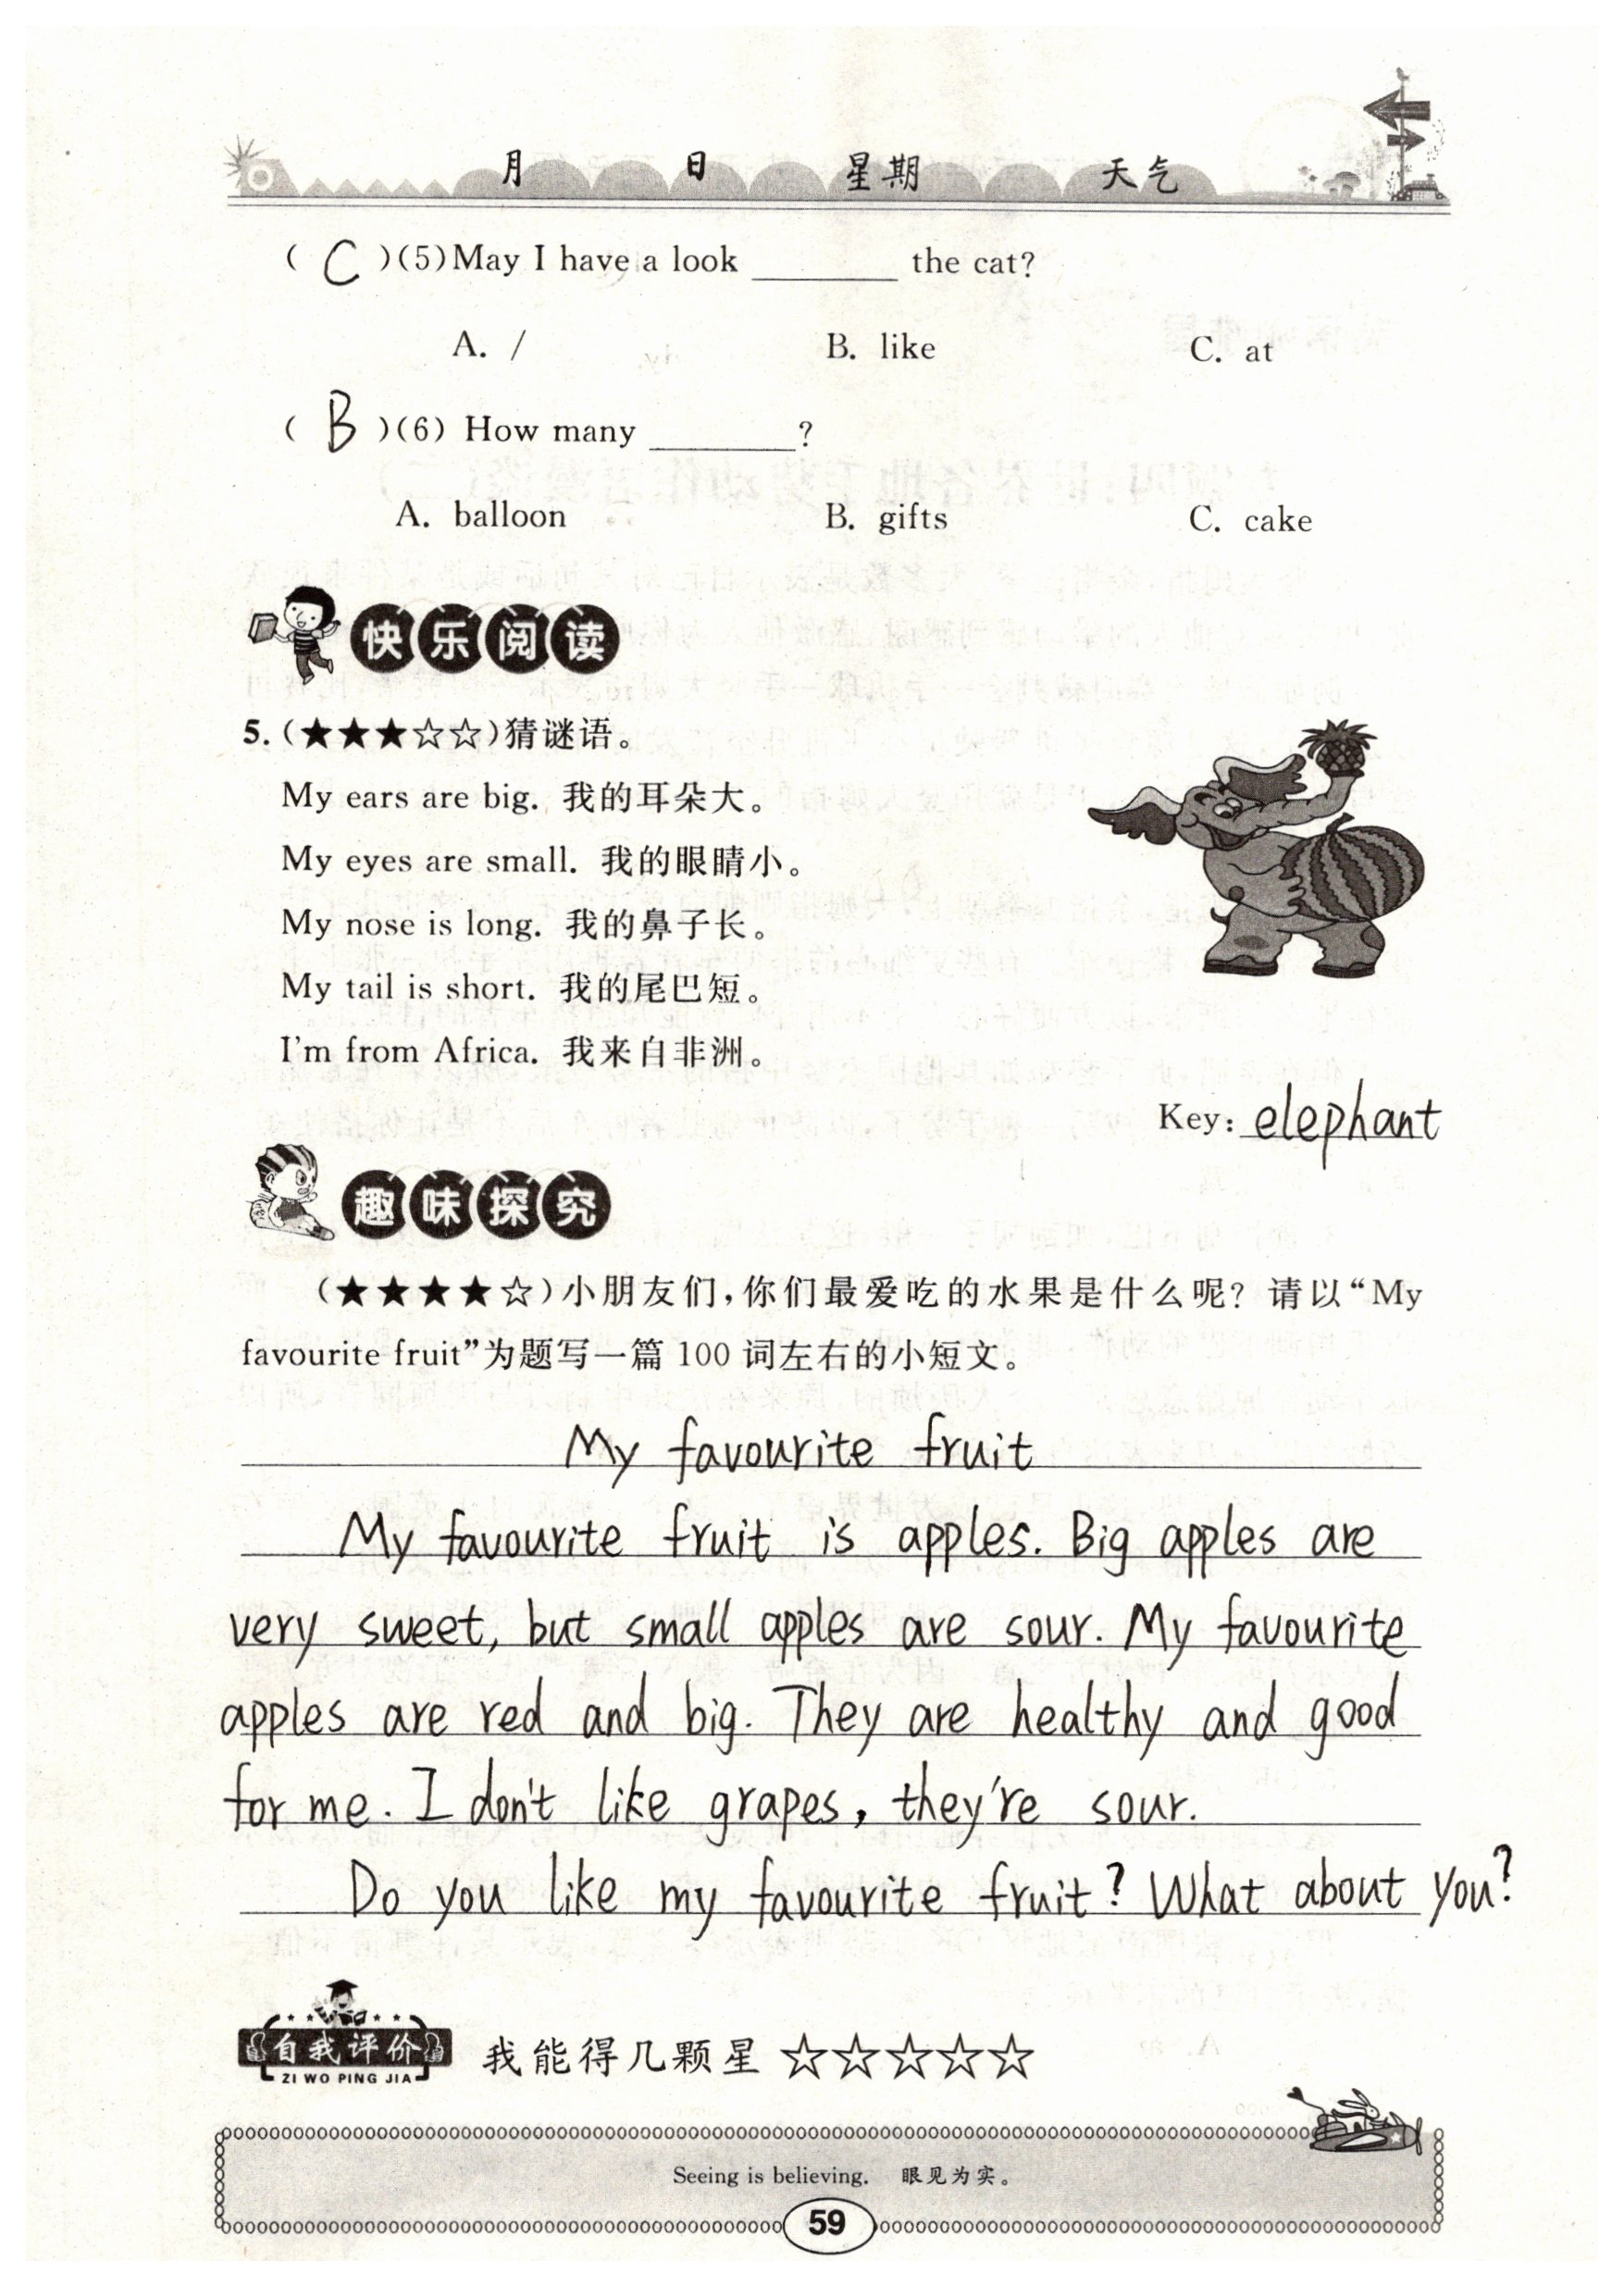 月 日 星期 天气
( C )(5)May I have a look ________ the cat?
A. / B. like C. at
( B )(6) How many ________?
A. balloon B. gifts C. cake
快乐阅读
5.(★★★☆☆)猜谜语。
My ears are big. 我的耳朵大。
My eyes are small. 我的眼睛小。
My nose is long. 我的鼻子长。
My tail is short. 我的尾巴短。
I'm from Africa. 我来自非洲。
Key: elephant
趣味探究
(★★★★☆)小朋友们,你们最爱吃的水果是什么呢? 请以“My
favourite fruit”为题写一篇 100 词左右的小短文。
My favourite fruit
My favourite fruit is apples. Big apples are
very sweet, but small apples are sour. My favourite
apples are red and big. They are healthy and good
for me. I don't like grapes, they're sour.
Do you like my favourite fruit? What about you?
自我评价 我能得几颗星 ☆☆☆☆☆
ZI WO PING JIA
Seeing is believing. 眼见为实。
59